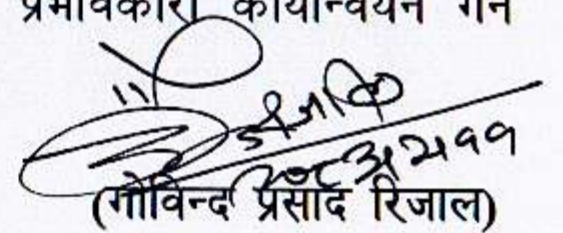 प्रभावकारी कार्यान्वयन गर्न
(गोविन्द प्रसाद रिजाल)